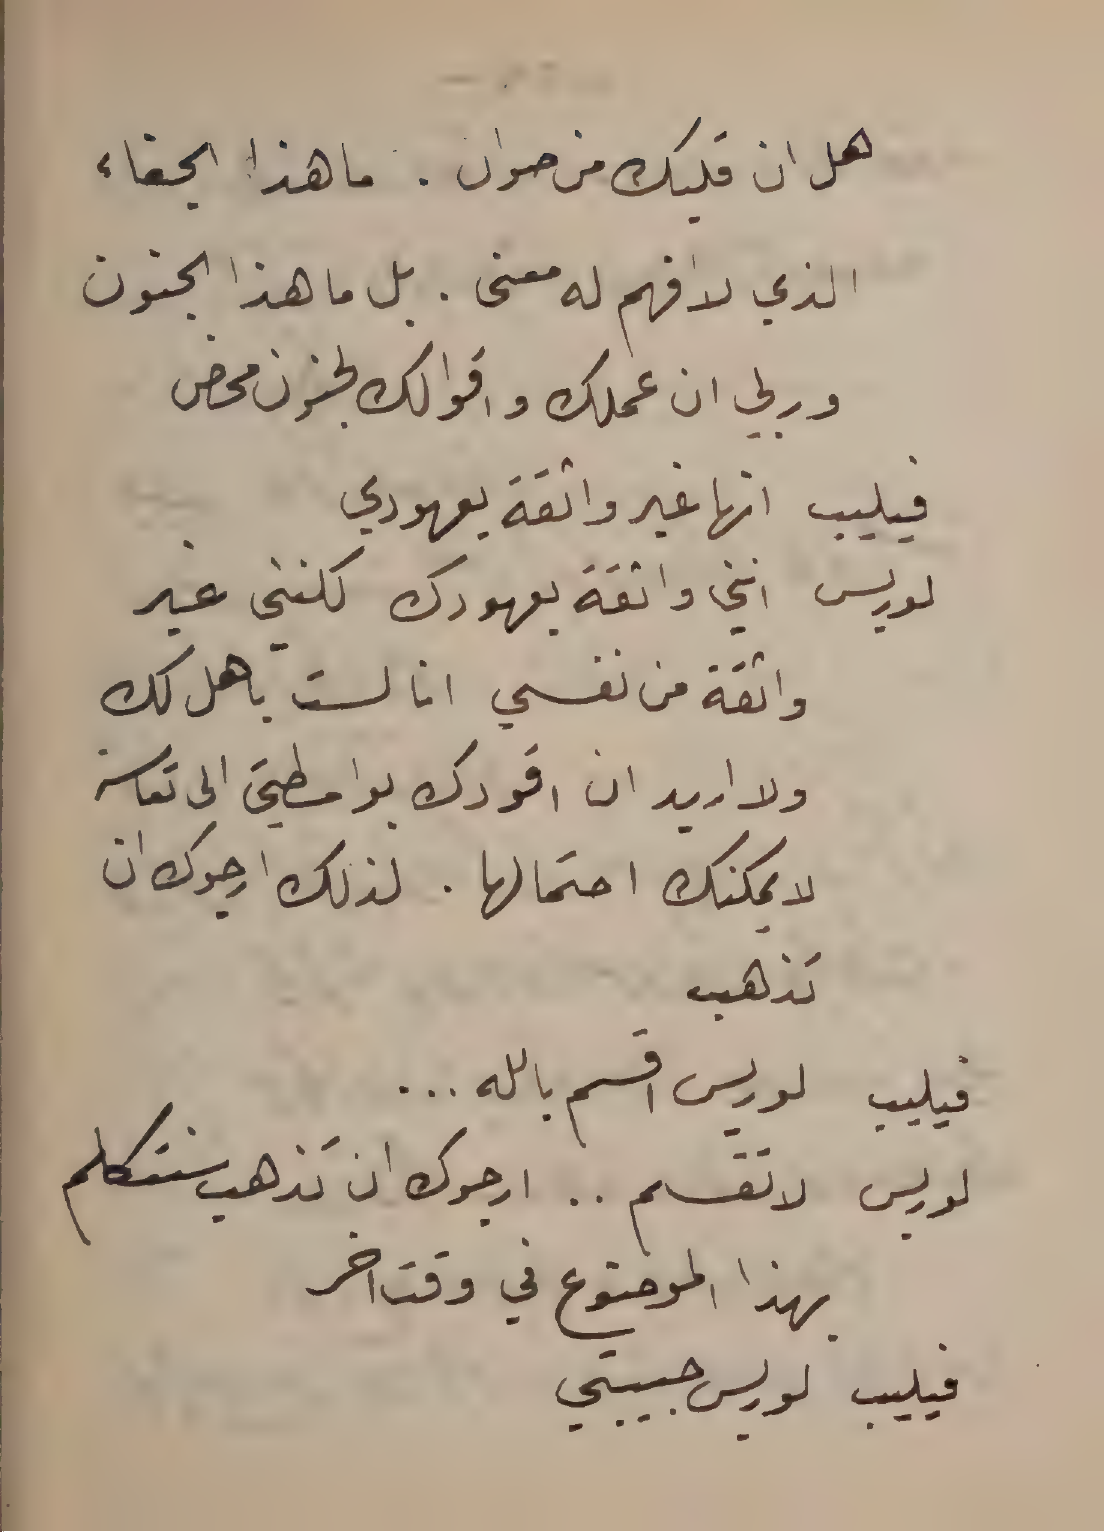 هل ان قلبك من صوان . ما هذا الجفاء
الذي لا افهم له معنى . بل ما هذا الجنون
وربي ان عملك واقوالك لجنون محض
فيليب انها غير واثقة بعهودي
لوريس انني واثقة بعهودك لكنني غير
واثقة من نفسي انا لست باهل لك
ولا اريد ان اقودك بواسطتي الى تعاسة
لا يمكنك احتمالها . لذلك ارجوك ان
تذهب
فيليب لوريس اقسم بالله ...
لوريس لا تقسم .. ارجوك ان تذهب سنتكلم
بهذا الموضوع في وقت اخر
فيليب لوريس حبيبتي